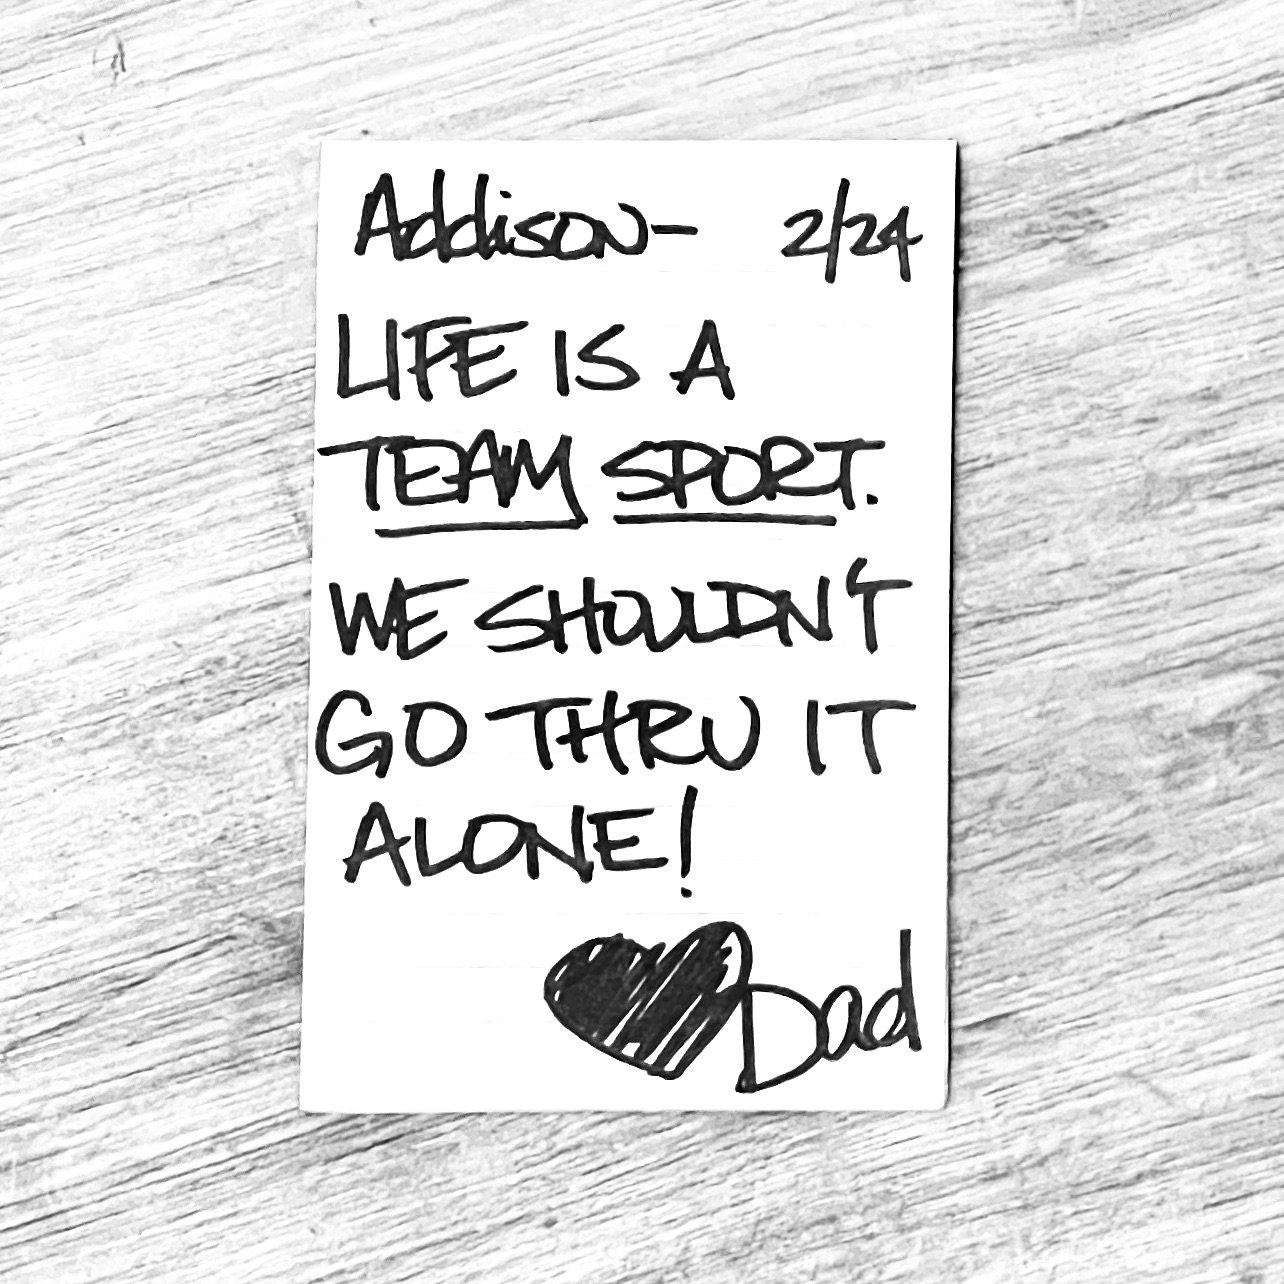 Addison- 2/24
LIFE IS A
TEAM SPORT.
WE SHOULDN'T
GO THRU IT
ALONE!
Dad